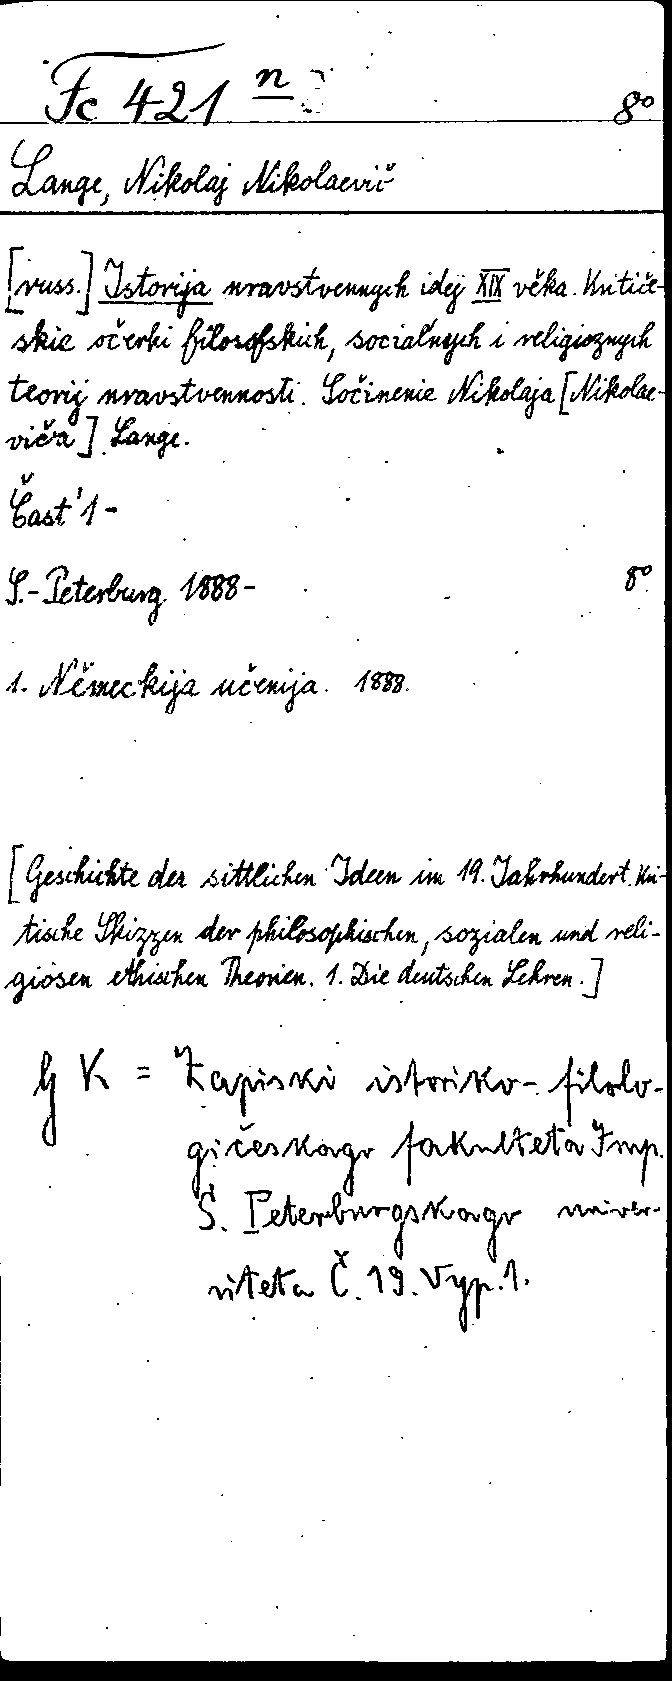 Fc 421 n 8°
Lange, Nikolaj Nikolaevič
[russ.] Istorija nravstvennych idej XIX věka. Kritiče-
skie očerki filosofskich, social'nych i religioznych
teorij nravstvennosti. Sočinenie Nikolaja [Nikolae-
viča] Lange.
Čast' 1-
S.-Peterburg 1888- 8°
1. Německija učenija. 1888.
[Geschichte der sittlichen Ideen im 19. Jahrhundert. Kri-
tische Skizzen der philosophischen, sozialen und reli-
giösen ethischen Theorien. 1. Die deutschen Lehren.]
K = Zapiski istoriko-filolo-
gičeskago fakulteta Imp.
S. Peterburgskago univer-
siteta Č. 19. Vyp. 1.